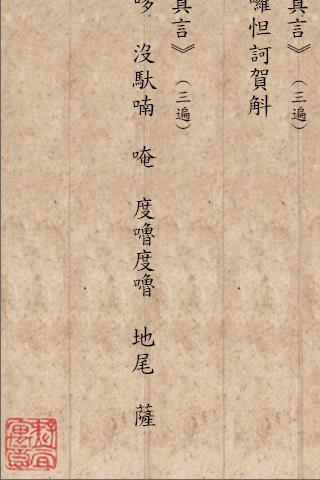 真言》（三遍）
囉怛訶賀斛
真言》（三遍）
哆　沒馱喃　唵　度嚕度嚕　地尾　薩